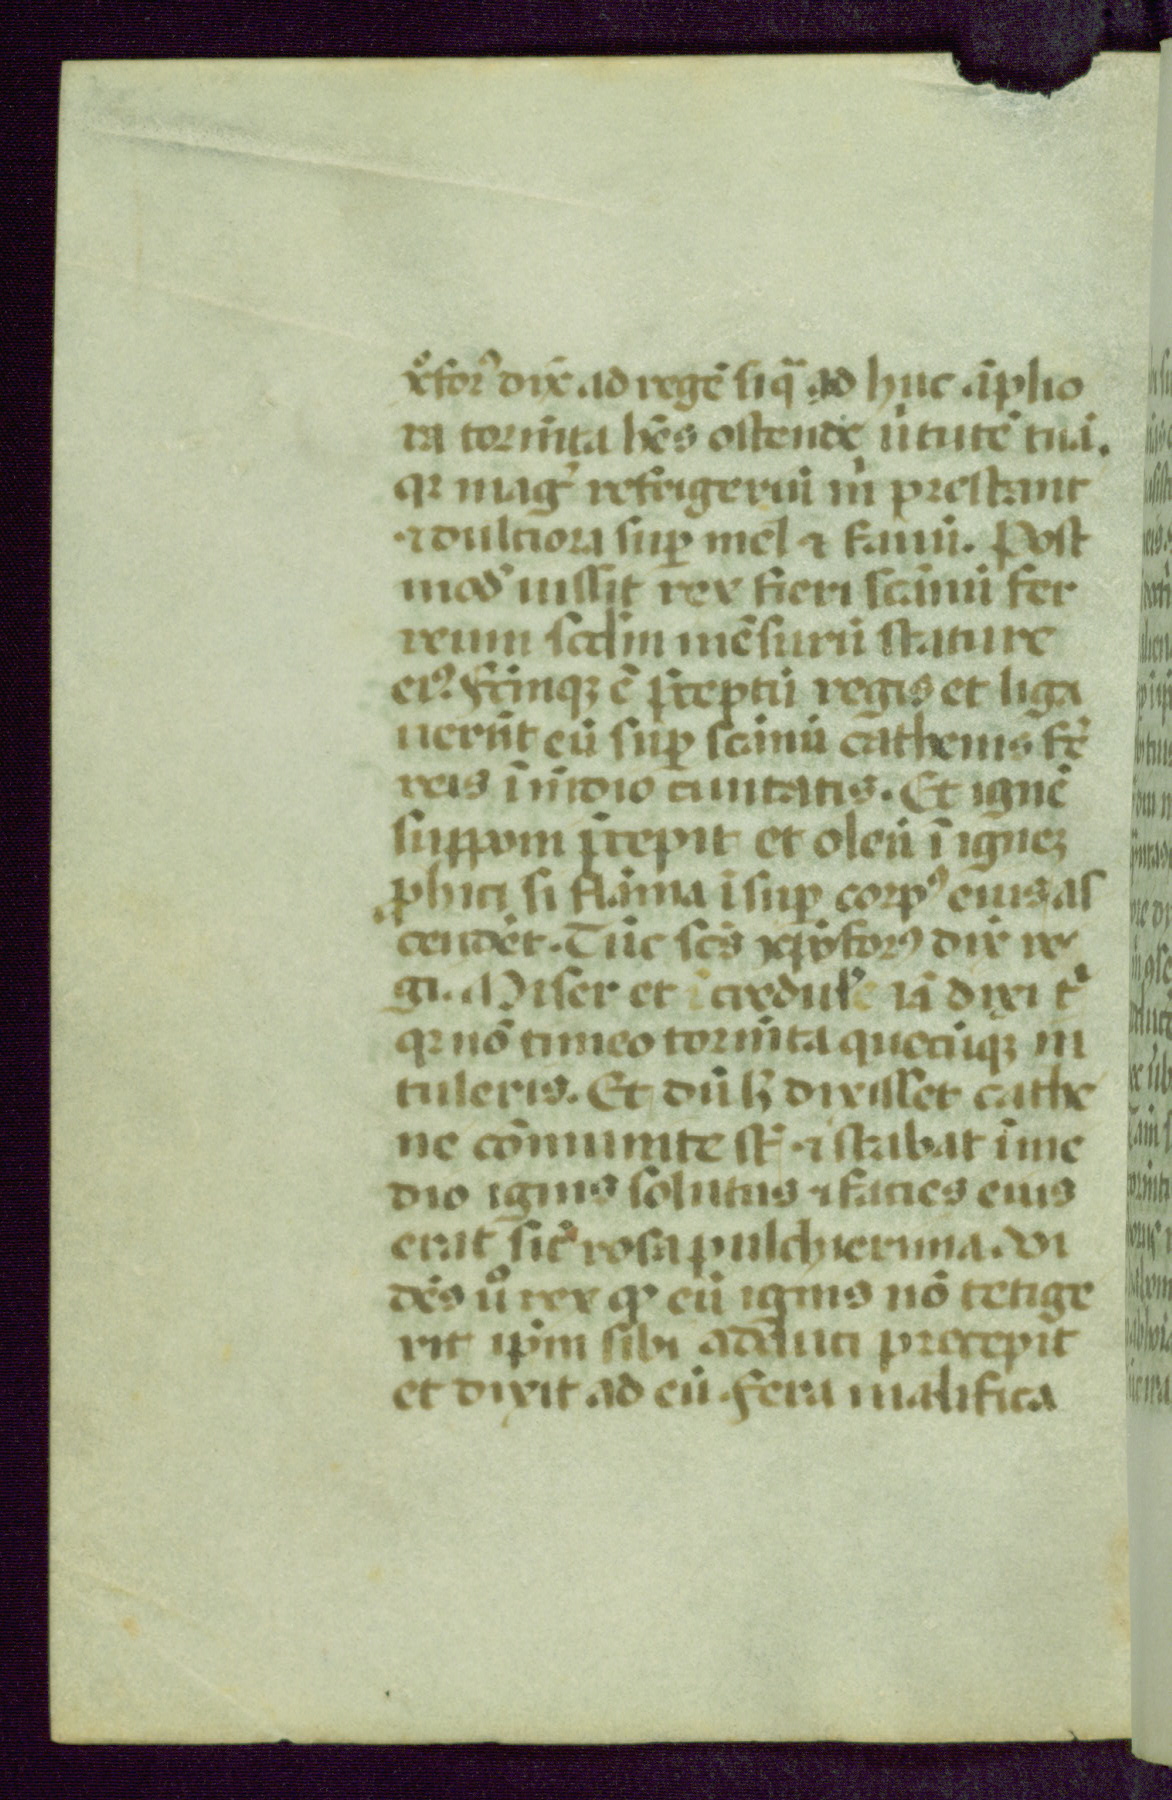 xͦfor᷒ dix̄ ad regē siq̄ ad huc āplio
ra tormn̄ta hn̄s ostende ūtutē tuā.
qꝛ mag᷒ refrigeriū m̄ prestant
⁊ dultiora suꝑ mel ⁊ fauū. Post
mod᷒ iussit rex fieri scānū fer
reum scd̄m mēsurā stature
ei᷒. Fc̄ inqꝫ ē p̄ceptū regis et liga
uerūt eū suꝑ scānū cathenis fe᷒r
reis ī medio ciuitatis. Et ignē
supponi p̄cepit et oleū ī ignez
ꝓhici si flāma īsuꝑ corp᷒ eius as
cendēt. Tūc scs̄ xp̄ofor᷒ dix̄ re
gi. Miser et īcredul᷒e iā dixi t̄
qꝛ nō timeo tormn̄ta quecūqꝫ in
tuleris. Et dū h̄ dixisset cathe
ne cōminute st̄ ⁊ stabat ī me
dio ignis solutus ⁊ facies eius
erat sic᷒ rosa pulchierrima. Vi
dēs ūͦ rex ꝙ eū ignis nō tetige
rit ip̄m sibi adduci precepit
et dixit ad eū. fera malifica